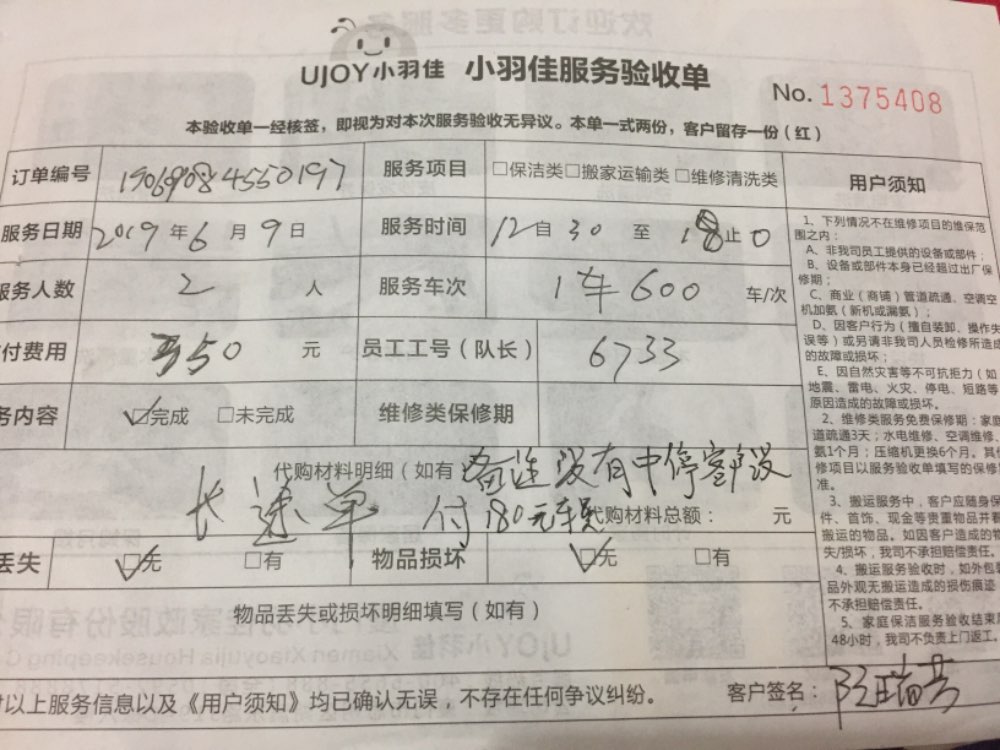 UJOY小羽佳 小羽佳服务验收单
No. 1375408
本验收单一经核签，即视为对本次服务验收无异议。本单一式两份，客户留存一份（红）
订单编号 服务项目 □保洁类□搬家运输类□维修清洗类
服务日期 2019年6月9日 服务时间 12自30至18止0
服务人数 2人 服务车次 1车600 车/次
付费用 50元 员工工号（队长） 6733
务内容 ☑完成 □未完成 维修类保修期
代购材料明细（如有 没有中停
长途单 付180元车 代购材料总额： 元
丢失 ☑无 □有 物品损坏 ☑无 □有
物品丢失或损坏明细填写（如有）
以上服务信息以及《用户须知》均已确认无误，不存在任何争议纠纷。 客户签名：
用户须知
1、下列情况不在维修项目的维保范
围之内：
A、非我司员工提供的设备或部件；
B、设备或部件本身已经超过出厂保
修期；
C、商业（商铺）管道疏通、空调空
机加氨（新机或漏氨）；
D、因客户行为（擅自装卸、操作失
误等）或另请非我司人员检修所造成
的故障或损坏；
E、因自然灾害等不可抗拒力（如
地震、雷电、火灾、停电、短路等
原因造成的故障或损坏。
2、维修类服务免费保修期：家庭
道疏通3天；水电维修、空调维修、
氨1个月；压缩机更换6个月。其他
修项目以服务验收单填写的保修
准。
3、搬运服务中，客户应随身保
件、首饰、现金等贵重物品并看
搬运的物品。如因客户造成的物
失/损坏，我司不承担赔偿责任。
4、搬运服务验收时，如外包装
品外观无搬运造成的损伤痕迹
不承担赔偿责任。
5、家庭保洁服务验收结束后
48小时，我司不负责上门返工。